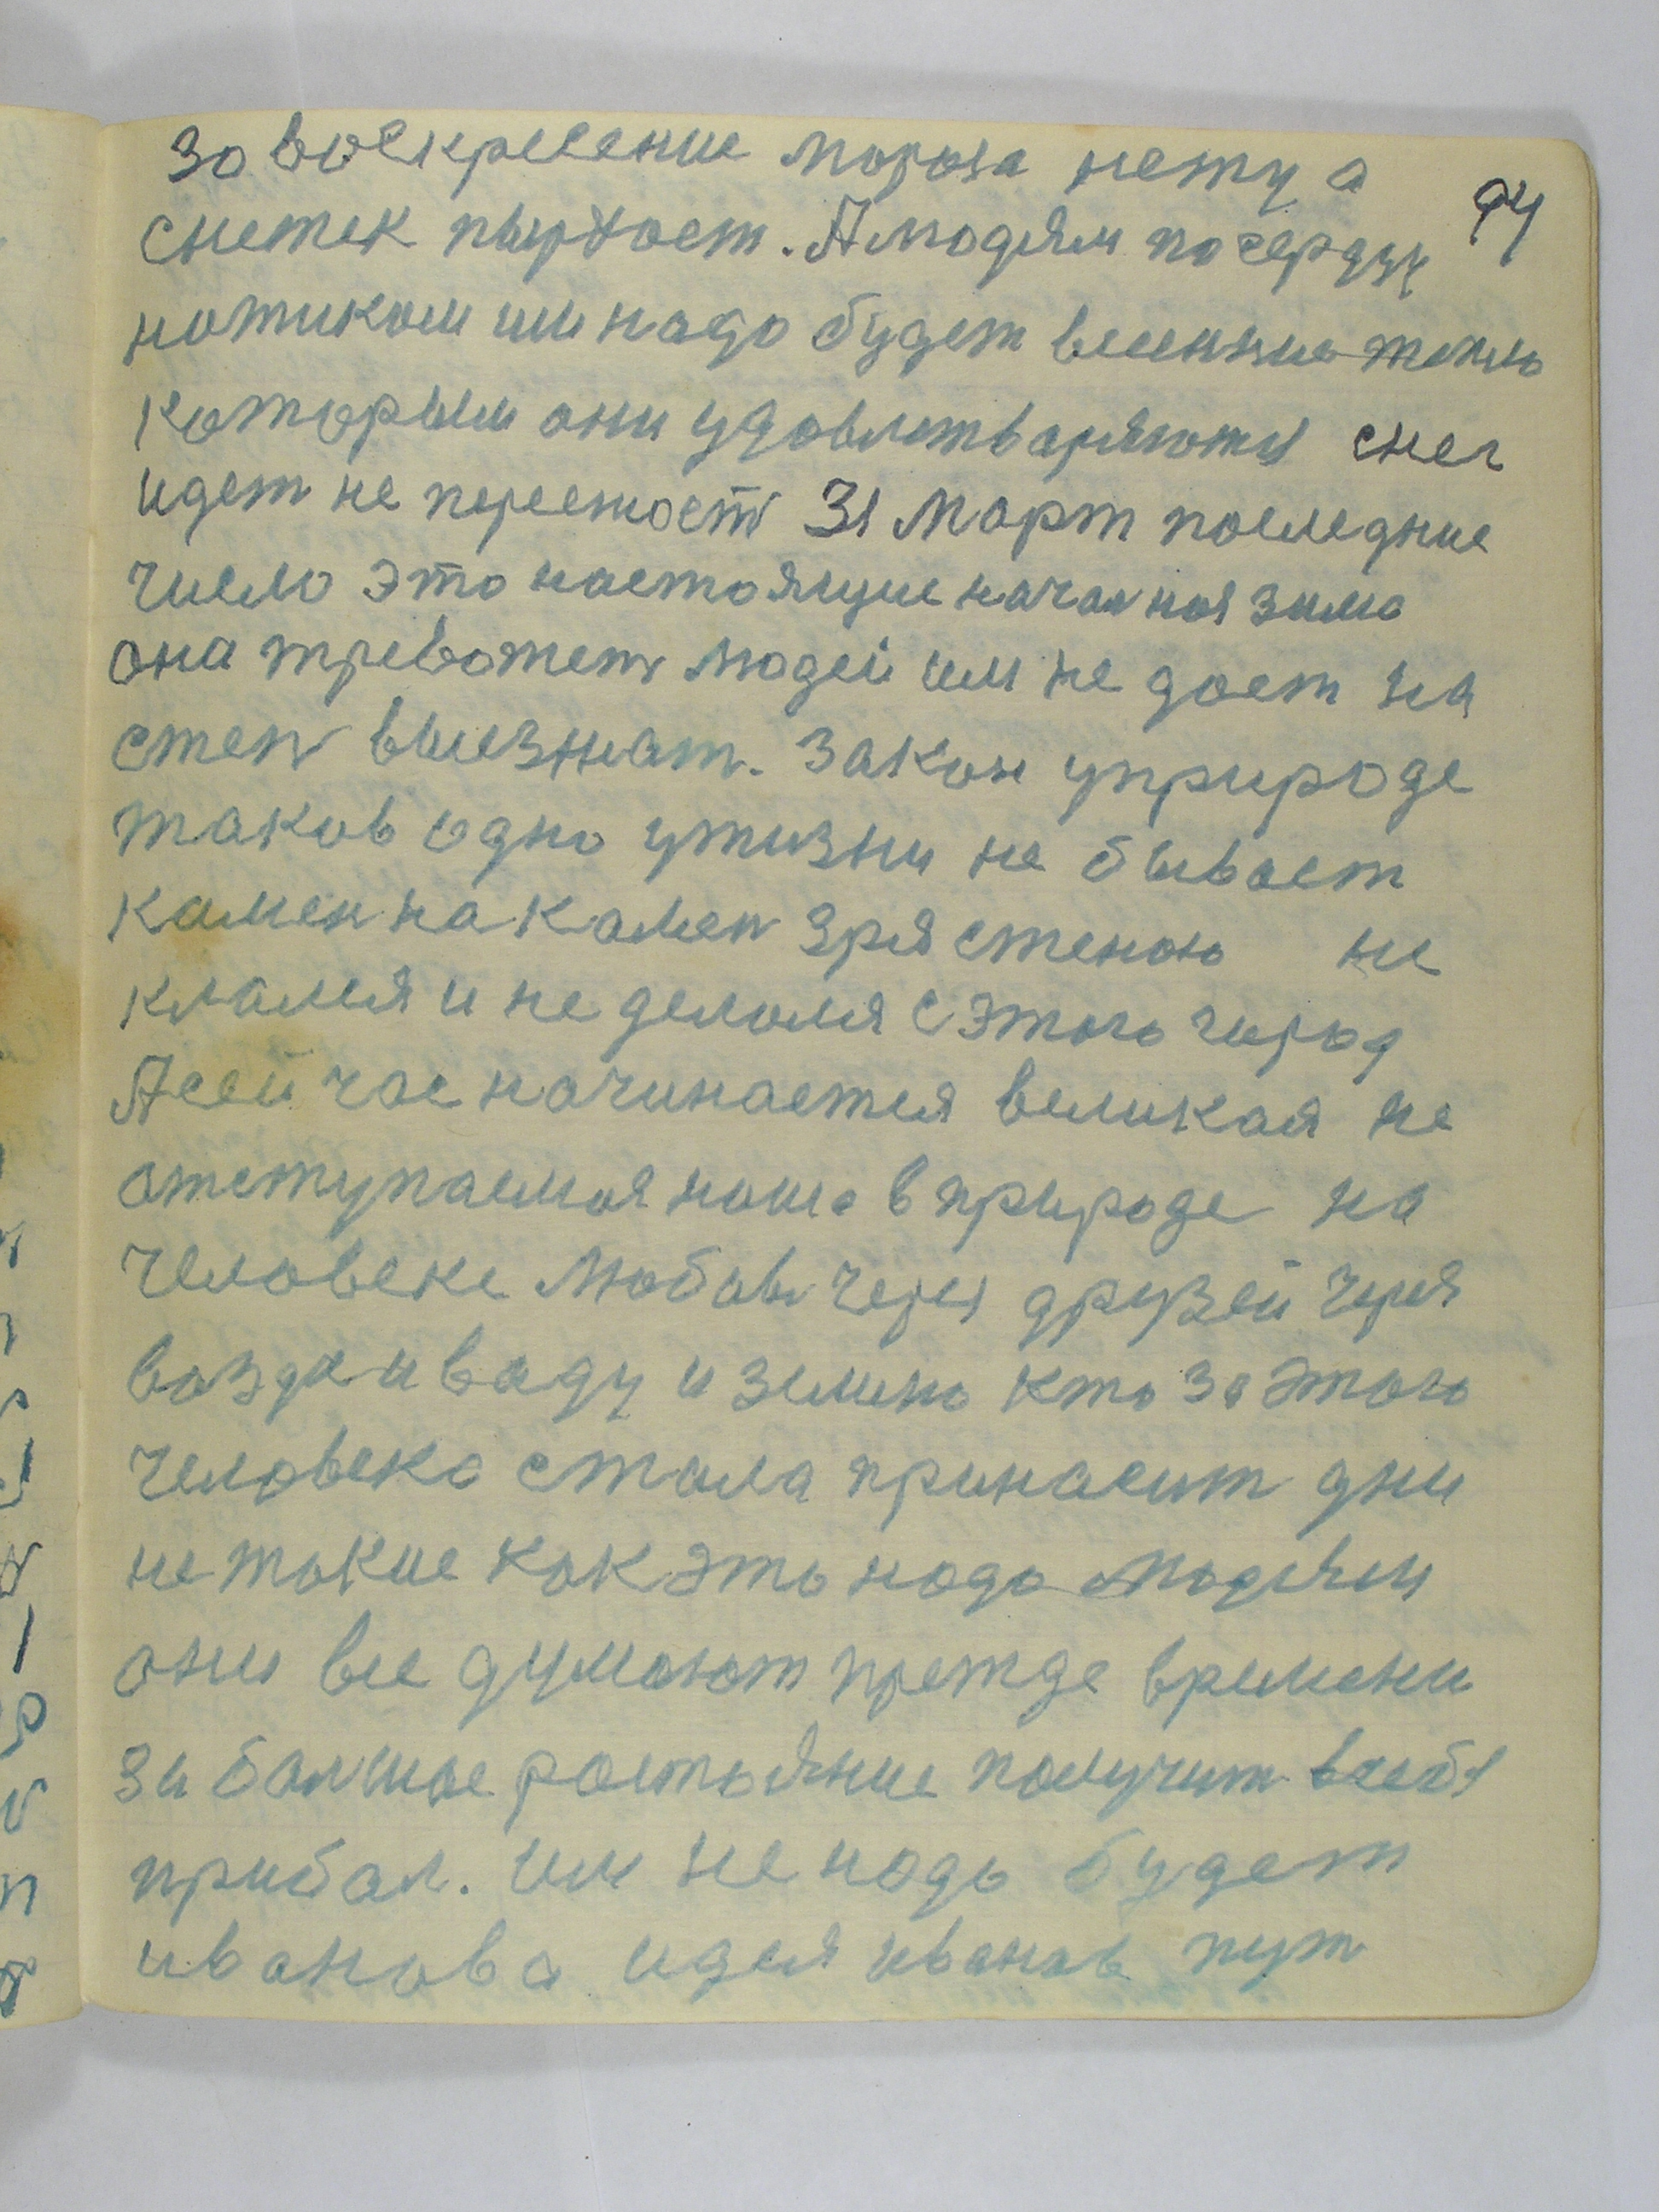 за воскресение мороза нету а
94
снежек пырхает. А людям по сердцу
ножиком им надо будет весеннне тепло
которым они удовлетваряются снег
идет не перестает 31 март последние
число это настоящие началная зима
она тревожет людей им не дает на
степ выезжат. Закон уприроде
таков одно ужизни не бывает
камен на камен зря стеною не
клался и не делолся с этого город
А сейчас начинается великая не
отступаемая наша в природе на
человеке любов через друзей через
воздух и ваду и землю кто за этого
человека стала принасит дни
не такие как это надо людям
они все думают прежде времени
за балшое растояние получит всебя
прибал. им не надо будет
иванова идея иванов пут